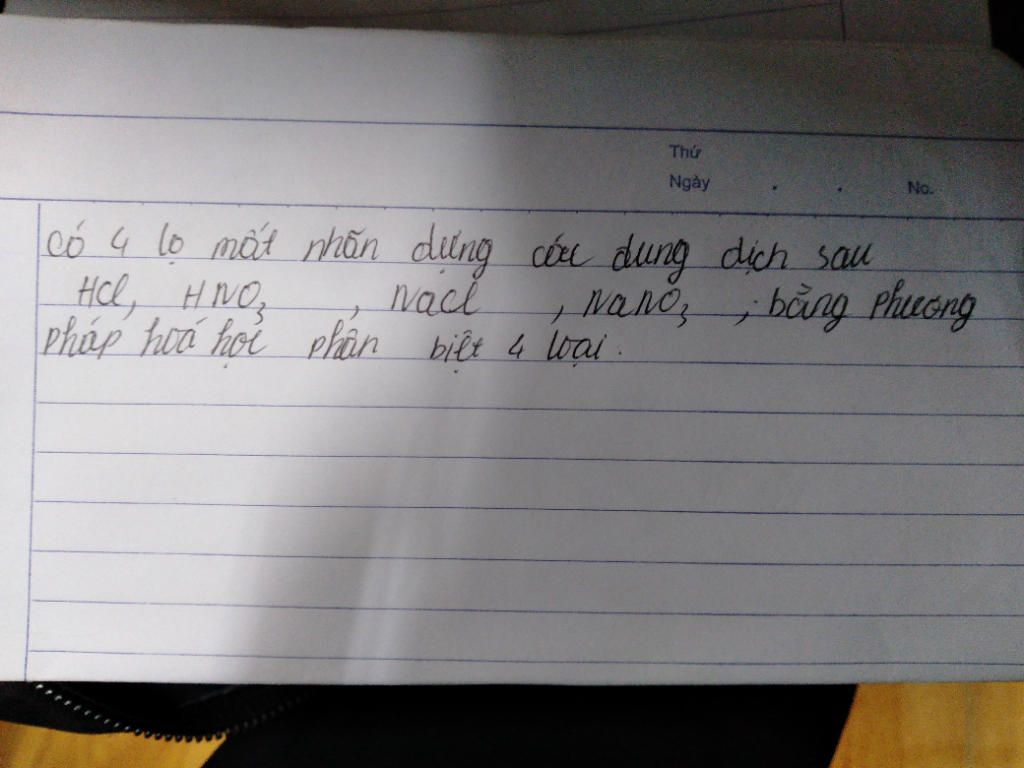 Thứ
Ngày . . No.
có 4 lọ mất nhãn dựng các dung dịch sau
HCl, HNO₃ , NaCl , NaNO₃ ; bằng phương
pháp hoá học phân biệt 4 loại.